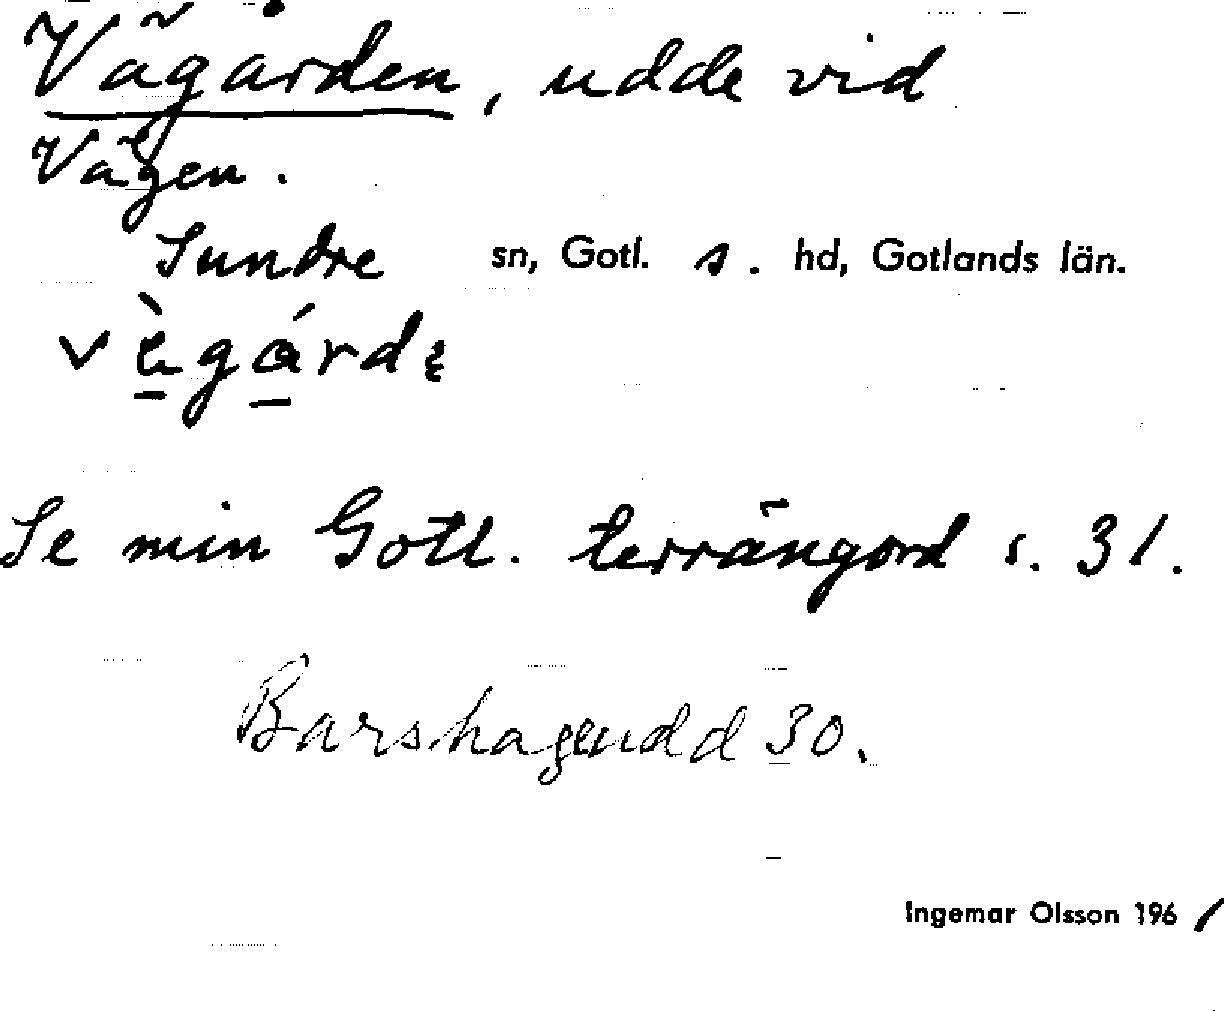 Vägården, udde vid
Vägen.
Sundre sn, Gotl. s. hd, Gotlands län.
Se min Gotl. terrängord s. 31.
Barshageudd 30.
Ingemar Olsson 1961